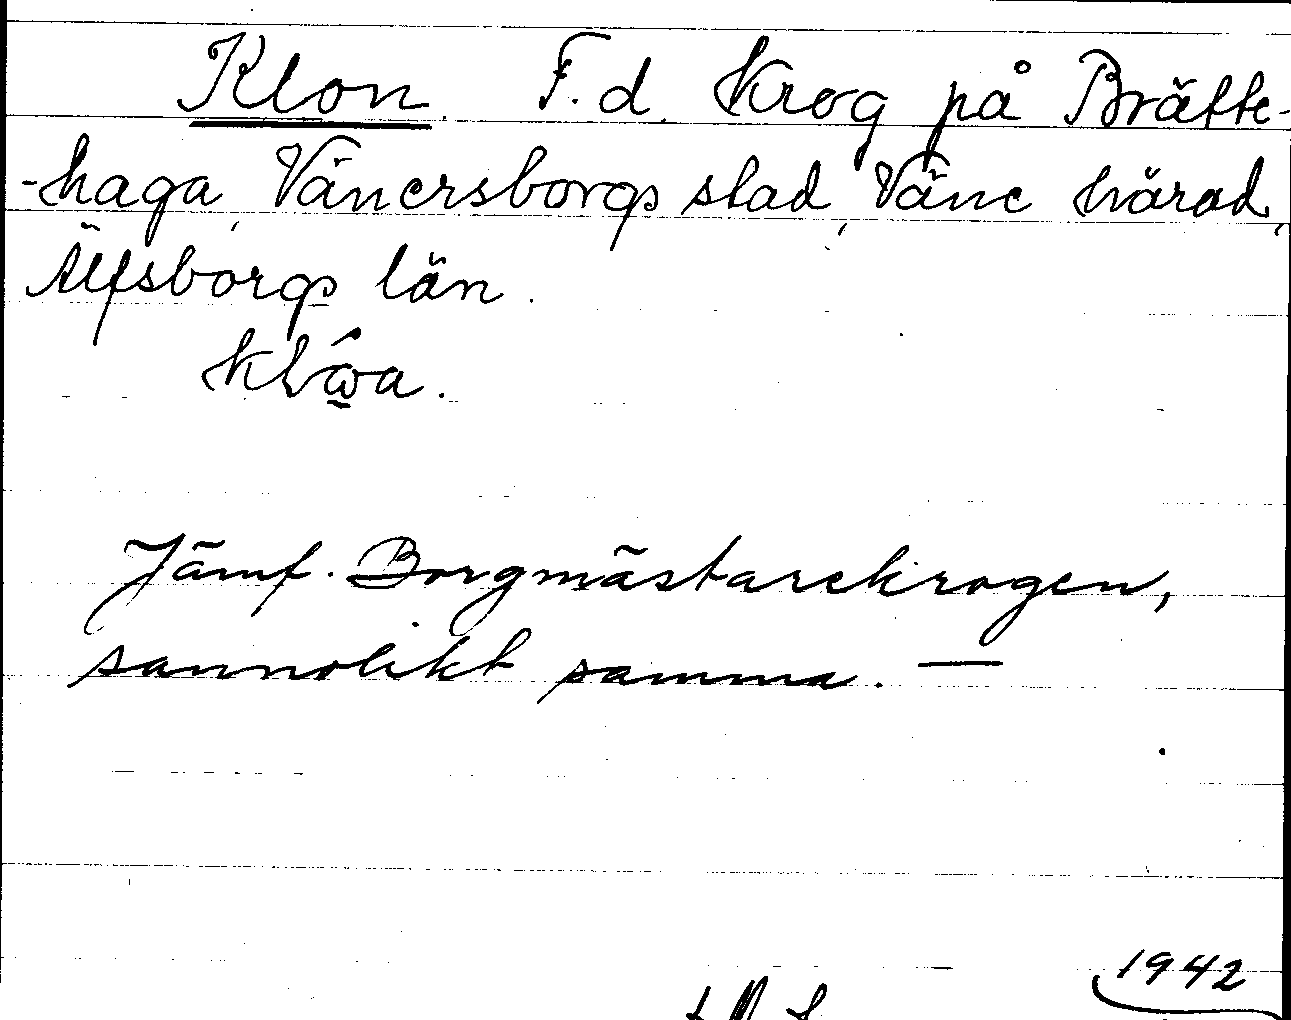 Klon. F.d. Krog på Brätte-
-haga, Vänersborgs stad, Väne härad,
Älfsborgs län.
Jämf. Borgmästarekrogen,
sannolikt samma. —
1942